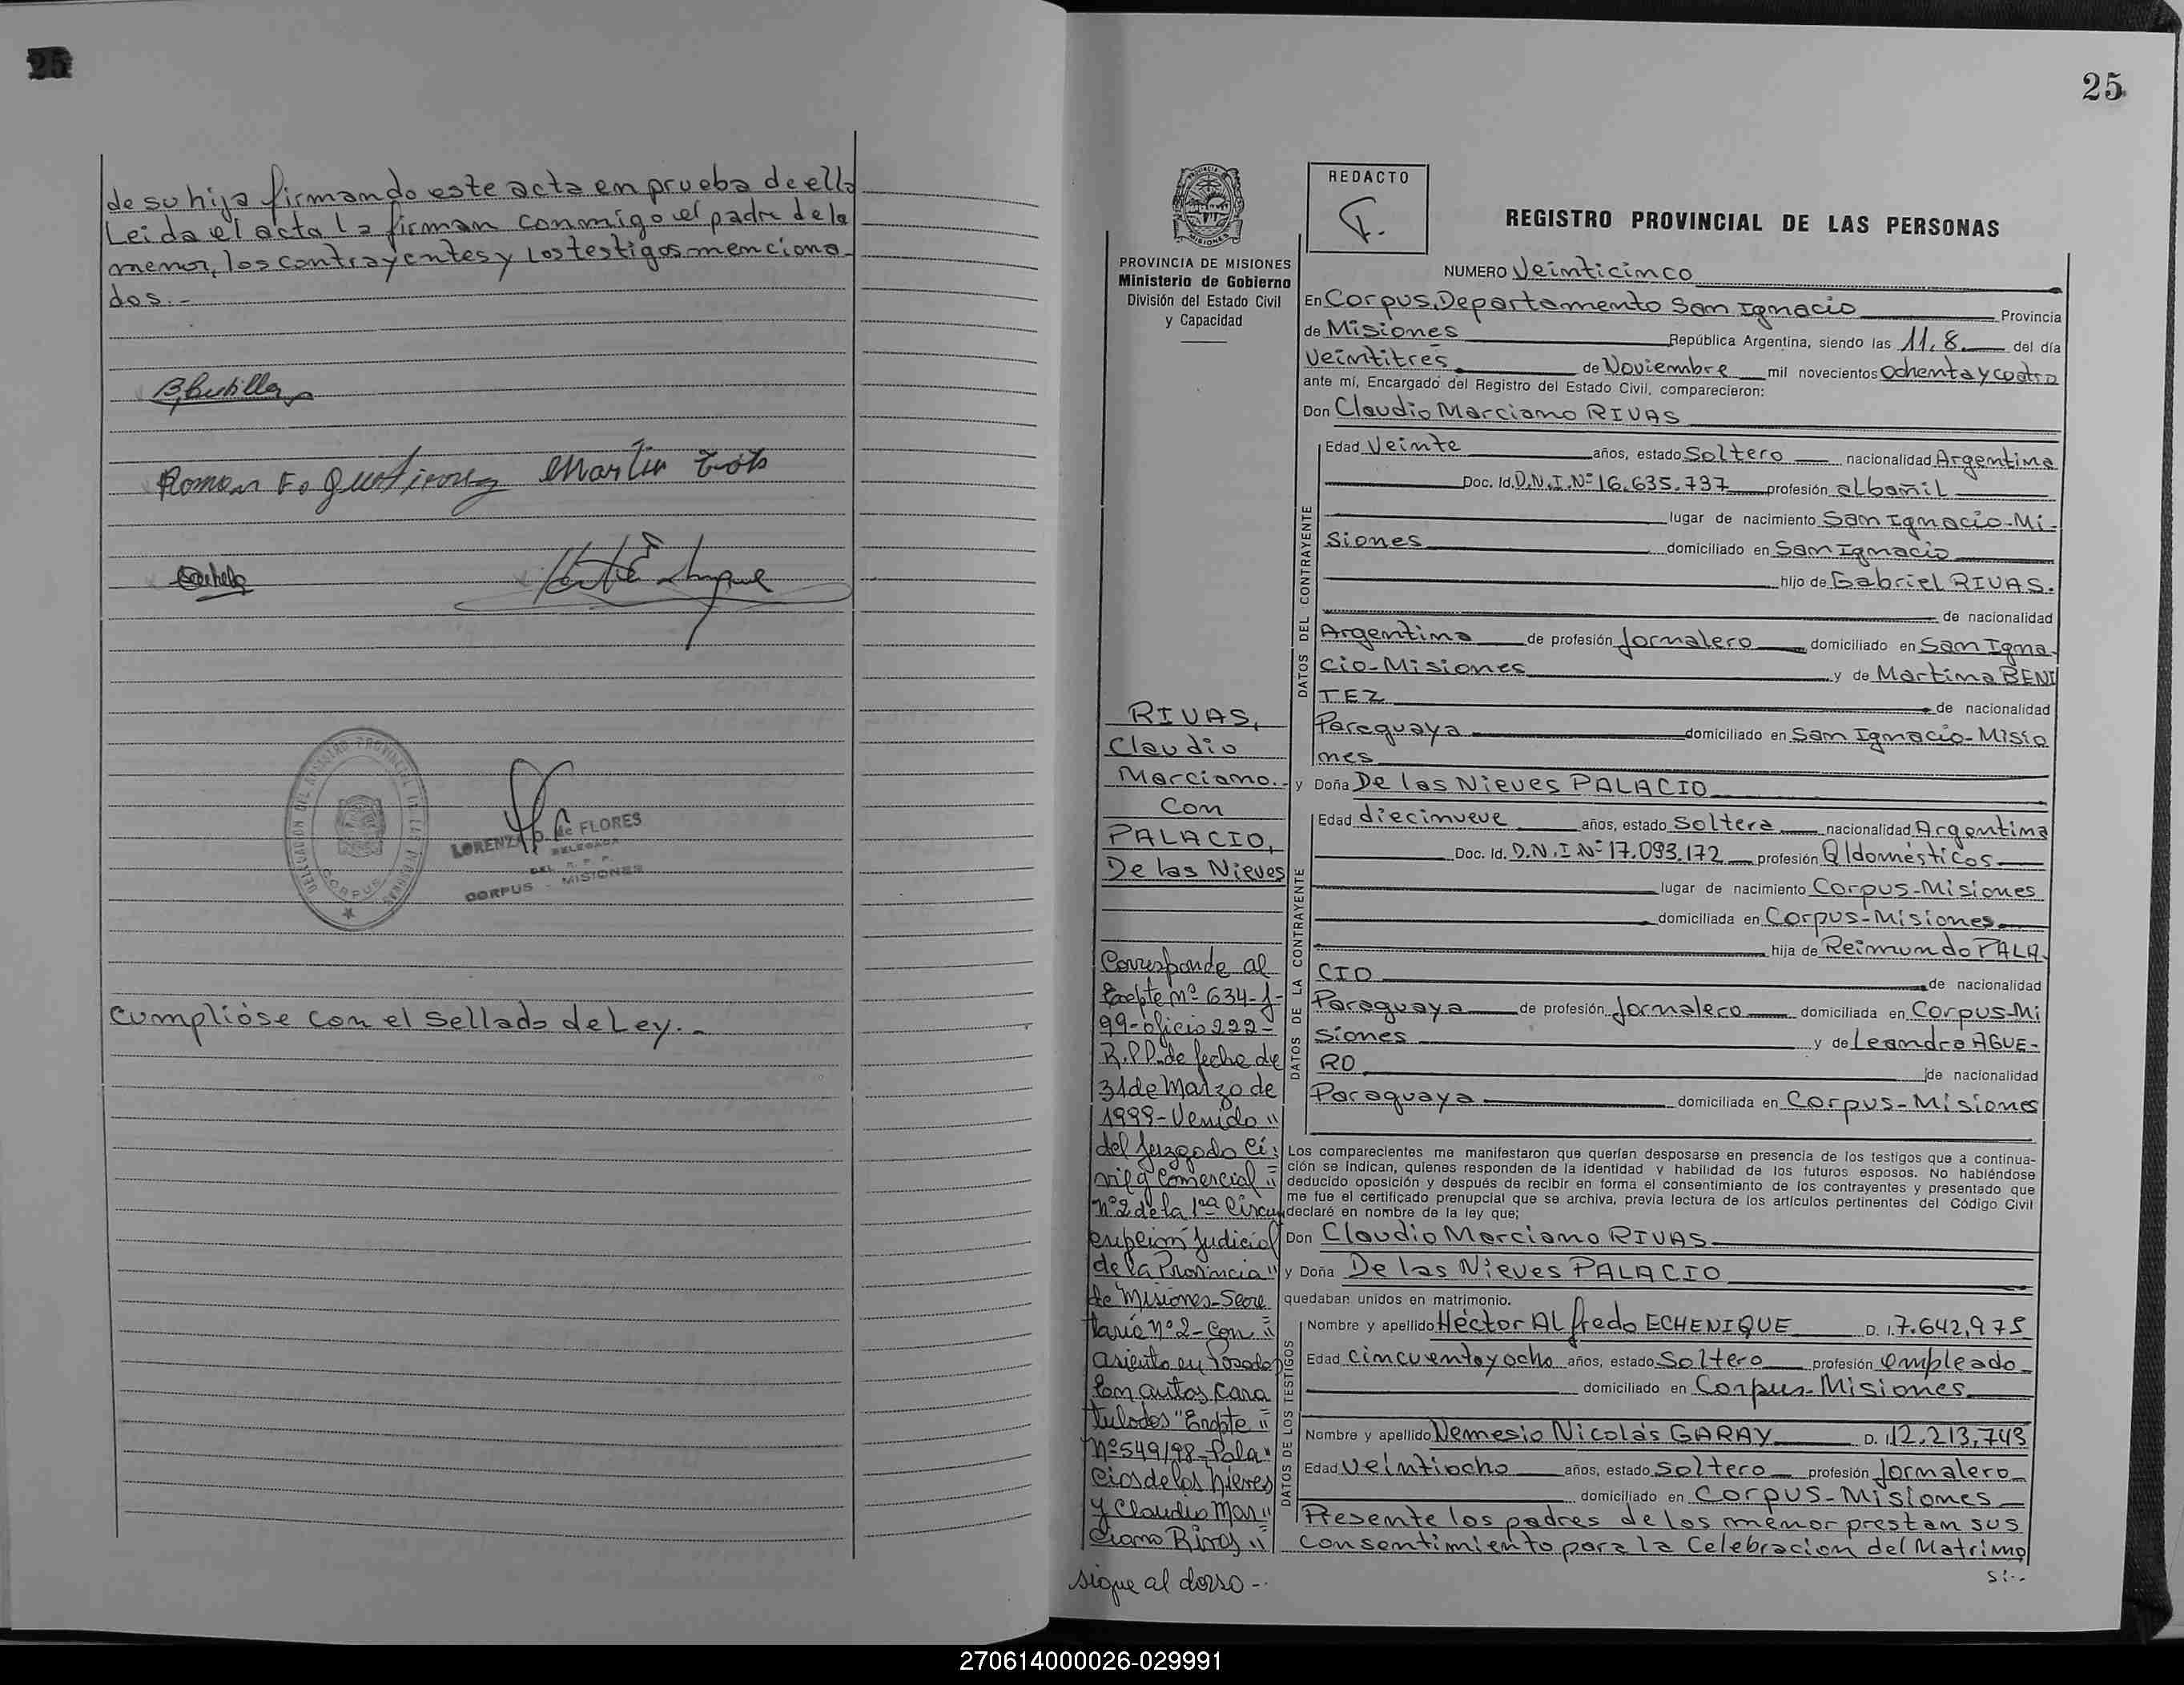 25
de su hija firmando este acta en prueba de ello
Leida el acta la firman conmigo el padre de la
menor, los contrayentes y los testigos menciona-
dos.-
Martin
LORENZA D. de FLORES
DELEGADA
DEL R. P. P.
CORPUS - MISIONES
CORPUS
cumplióse con el sellado de Ley.-
25
PROVINCIA DE MISIONES
Ministerio de Gobierno
División del Estado Civil
y Capacidad
REDACTO
REGISTRO PROVINCIAL DE LAS PERSONAS
NUMERO Veinticinco
En Corpus, Departamento San Ignacio Provincia
de Misiones República Argentina, siendo las 11,8 del día
Veintitrés de Noviembre mil novecientos Ochenta y cuatro
ante mí, Encargado del Registro del Estado Civil, comparecieron:
Don Claudio Marciano RIVAS
DATOS DEL CONTRAYENTE
Edad Veinte años, estado Soltero nacionalidad Argentina
Doc. Id. D.N.I.Nº 16.635.737 profesión albañil
lugar de nacimiento San Ignacio-Mi-
siones domiciliado en San Ignacio
hijo de Gabriel RIVAS.
de nacionalidad
Argentina de profesión Jornalero domiciliado en San Igna-
cio-Misiones y de Martina BENI
TEZ de nacionalidad
Paraguaya domiciliado en San Ignacio-Misio
nes
y Doña De las Nieves PALACIO
DATOS DE LA CONTRAYENTE
Edad diecinueve años, estado Soltera nacionalidad Argentina
Doc. Id. D.N.I.Nº 17.093.172 profesión Q/domésticos
lugar de nacimiento Corpus-Misiones
domiciliada en Corpus-Misiones
hija de Reimundo PALA
CIO de nacionalidad
Paraguaya de profesión Jornalero domiciliada en Corpus-Mi
siones y de Leandra AGUE-
RO de nacionalidad
Paraguaya domiciliada en Corpus-Misiones
Los comparecientes me manifestaron que querían desposarse en presencia de los testigos que a continua-
ción se indican, quienes responden de la identidad y habilidad de los futuros esposos. No habiéndose
deducido oposición y después de recibir en forma el consentimiento de los contrayentes y presentado que
me fue el certificado prenupcial que se archiva, previa lectura de los artículos pertinentes del Código Civil
declaré en nombre de la ley que;
Don Claudio Marciano RIVAS
y Doña De las Nieves PALACIO
quedaban unidos en matrimonio.
DATOS DE LOS TESTIGOS
Nombre y apellido Héctor Alfredo ECHENIQUE D. I. 7.642.975
Edad cincuenta y ocho años, estado Soltero profesión empleado
domiciliado en Corpus-Misiones
Nombre y apellido Nemesio Nicolás GARAY D. I. 12.213.743
Edad Veintiocho años, estado Soltero profesión Jornalero
domiciliado en Corpus-Misiones
Presente los padres de los menor prestan sus
consentimiento para la celebracion del Matrimo
si..
RIVAS,
Claudio
Marciano.-
Con
PALACIO,
De las Nieves
Corresponde al
Expte nº 634-J-
99-oficio 222-
R.P.P. de fecha de
31 de Marzo de
1999-Venido "
del Juzgado Ci-
vil y Comercial =
nº2 de la 1ra Circun
cripción Judicial
de la Provincia "
de Misiones-Secre
taría nº 2-Con =
asiento en Posadas
en autos Cara
tulados "Expte =
nº549/98-Pala"
cios de las Nieves
y Claudio Mar "
ciano Rivas "
sigue al dorso -.
270614000026-029991